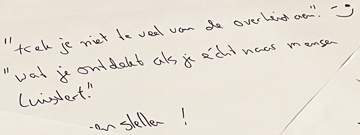 "trek je niet te veel van de overheid aan". :-)
"wat je ontdekt als je écht naar mensen
luistert."
-en stellen !